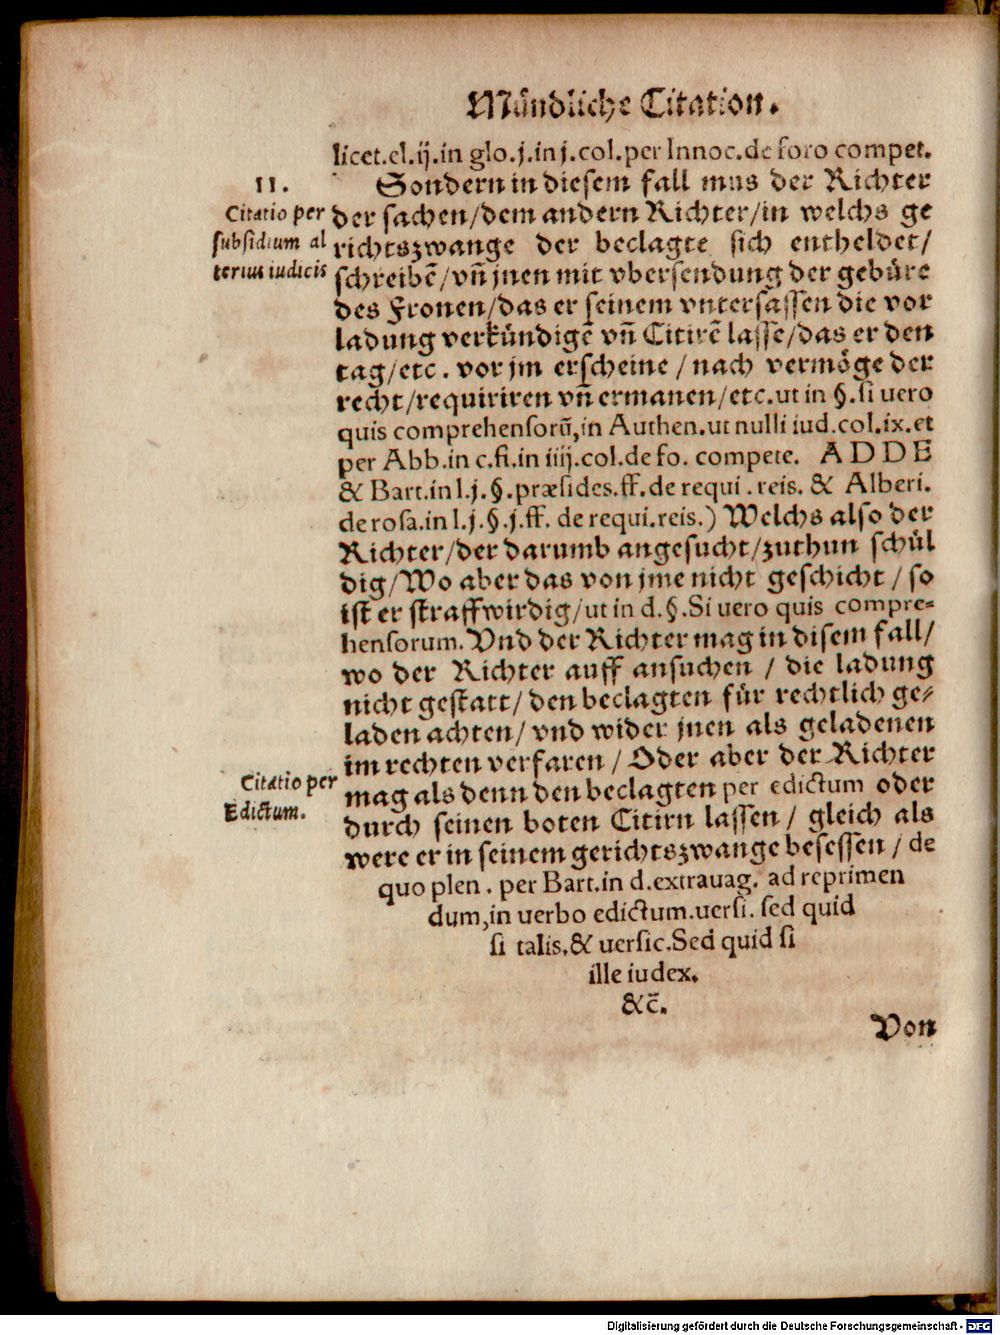 Mündliche Citation.
licet.el.ij.in glo.j.in j.col.per Innoc.de foro compet.
11.
Sondern in diesem fall mus der Richter
Citatio per
subsidium al
terius iudicis
der sachen/dem andern Richter/in welchs ge
richtszwange der beclagte sich entheldet/
schreibē/vñ jnen mit vbersendung der gebüre
des Fronen/das er seinem vntersassen die vor
ladung verkündigē vñ Citirē lasse/das er den
tag/etc. vor jm erscheine / nach vermöge der
recht/requiriren vñ ermanen/etc.ut in §.si uero
quis comprehensorũ,in Authen.ut nulli iud.col.ix.et
per Abb.in c.fi.in iiij.col.de fo. compete. A D D E
& Bart.in l.j.§.præsides.ff.de requi.reis. & Alberi.
de rosa.in l.j.§.j.ff. de requi.reis.) Welchs also der
Richter/der darumb angesucht/zuthun schül
dig/Wo aber das von jme nicht geschicht / so
ist er straffwirdig/ut in d.§.Si uero quis compre=
hensorum.Vnd der Richter mag in disem fall/
wo der Richter auff ansuchen / die ladung
nicht gestatt/ den beclagten für rechtlich ge=
laden achten/ vnd wider jnen als geladenen
im rechten verfaren / Oder aber der Richter
Citatio per
Edictum.
mag als denn den beclagten per edictum oder
durch seinen boten Citirn lassen / gleich als
were er in seinem gerichtszwange besessen / de
quo plen. per Bart.in d.extrauag. ad reprimen
dum,in uerbo edictum.uersi. sed quid
si talis,& uersic.Sed quid si
ille iudex.
&c̄.
Von
Digitalisierung gefördert durch die Deutsche Forschungsgemeinschaft - DFG